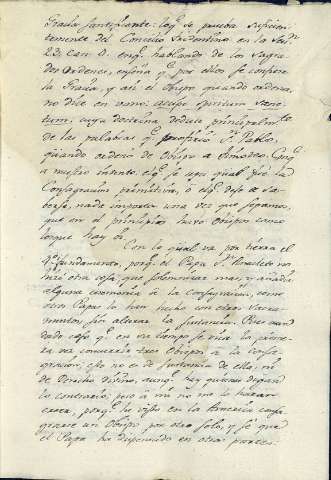 Gracia santificante: lo q.e se prueba suficien-
temente del Concilio Tridentino en la Ses.n
23. Can. en q.e hablando de los Sagra-
dos Ordenes, enseña q.e por ellos se confiere
la Gracia, y así el Obispo quando ordena,
no dice en vano: accipe Spiritum Sanc-
tum; cuya doctrina deduce principalm.te
de las palabras q.e profirió S.n Pablo,
quando ordenó de Obispo a Timoteo. Conq.e
a nuestro intento, el q.e se sepa qual fue la
Consagracion primitiva, ó el q.e dejó de sa-
berse, nada importa una vez que sepamos,
que en el principio huvo Obispos como
los que hay oy.
Con lo qual va por tierra el
fundamento, porq.e el Papa S.n Anacleto no
hizo otra cosa, que solemnizar mas, y añadir
alguna ceremonia á la Consagracion, como
otros Papas lo han hecho con otros Sacra-
mentos, sin alterar la sustancia. Pues dan-
dado caso q.e en su tiempo se vea la prime-
ra vez concurrir tres Obispos á la Consa-
gracion, esto no es de sustancia de ella, ni
de Derecho divino, aunq.e hay quienes digan
lo contrario, pero á mi no me lo haran
creer, porq.e he visto en la America consa-
grarse un Obispo por otro solo, y sé que
el Papa ha dispensado en otras partes.